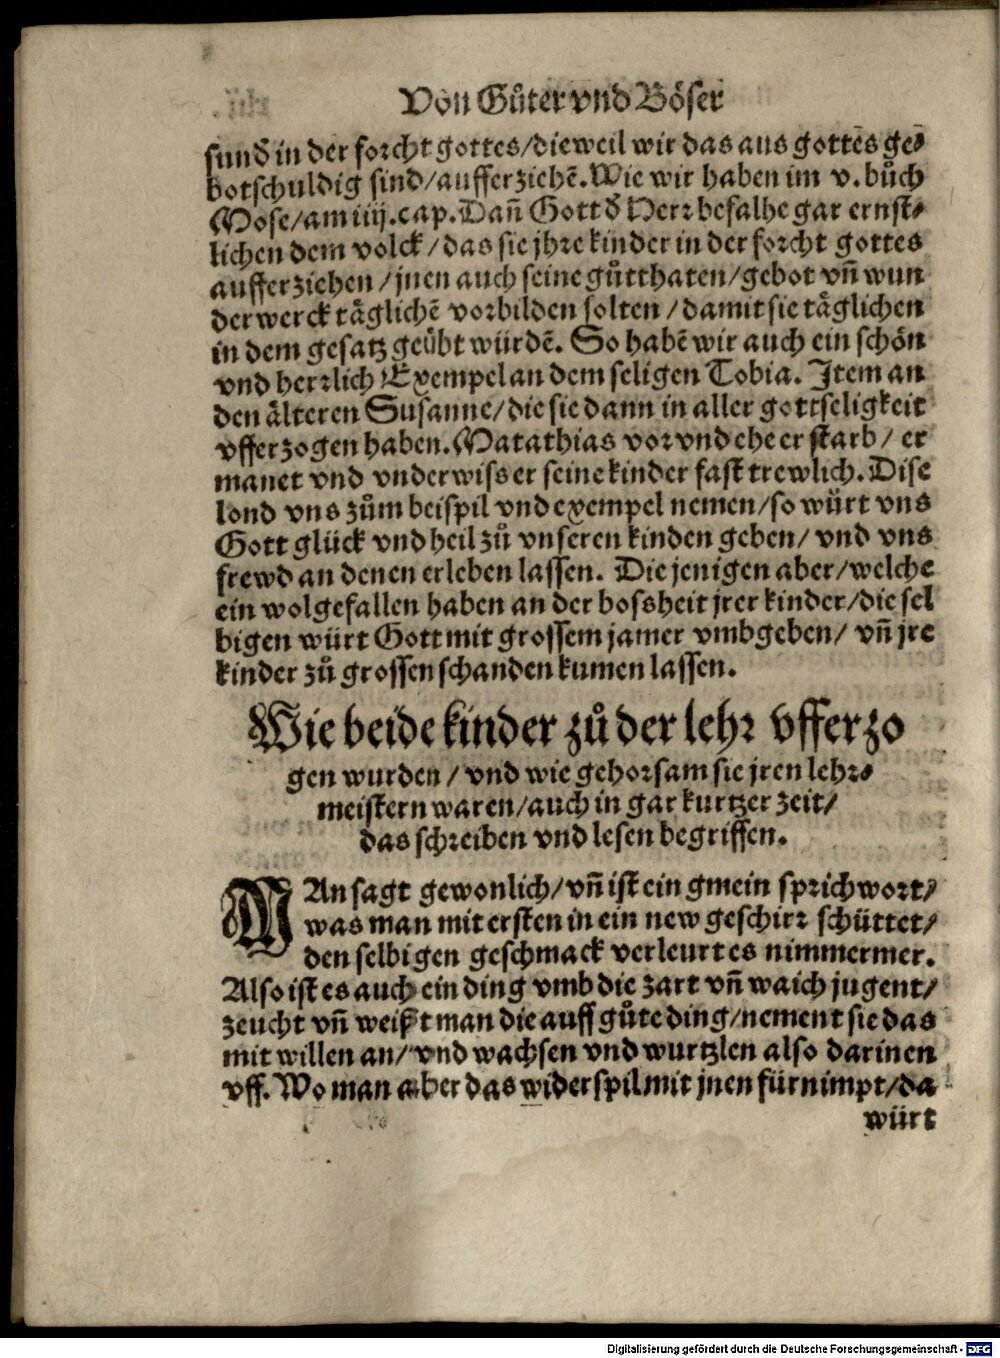 Von Gůter vnd Böser
sund in der forcht gottes/dieweil wir das aus gottes ge⸗
bot schuldig sind/aufferziehẽ. Wie wir haben im v. bůch
Mose/am iiij. cap. Dañ Gott d Herr befalhe gar ernst⸗
lichen dem volck/das sie jhre kinder in der forcht gottes
aufferziehen/jnen auch seine gůtthaten/gebot vñ wun
derwerck täglichẽ vorbilden solten/damit sie täglichen
in dem gesatz geübt würdẽ. So habẽ wir auch ein schön
vnd herrlich Exempel an dem seligen Tobia. Item an
den älteren Susanne/die sie dann in aller gottseligkeit
vfferzogen haben. Matathias vor vnd ehe er starb/ er
manet vnd vnderwiss er seine kinder fast trewlich. Dise
lond vns zům beispil vnd exempel nemen/so würt vns
Gott glück vnd heil zů vnseren kinden geben/ vnd vns
frewd an denen erleben lassen. Die jenigen aber/welche
ein wolgefallen haben an der bossheit jrer kinder/die sel
bigen würt Gott mit grossem jamer vmbgeben/ vñ jre
kinder zů grossen schanden kumen lassen.
Wie beide kinder zů der lehr vfferzo
gen wurden/ vnd wie gehorsam sie jren lehr⸗
meistern waren/auch in gar kurtzer zeit/
das schreiben vnd lesen begriffen.
MAn sagt gewonlich/vñ ist ein gmein sprichwort/
was man mit ersten in ein new geschirr schüttet/
den selbigen geschmack verleurt es nimmermer.
Also ist es auch ein ding vmb die zart vñ waich jugent/
zeucht vñ weißt man die auff gůte ding/nement sie das
mit willen an/ vnd wachsen vnd wurtzlen also darinen
vff. Wo man aber das widerspil mit jnen fürnimpt/da
würt
Digitalisierung gefördert durch die Deutsche Forschungsgemeinschaft - DFG